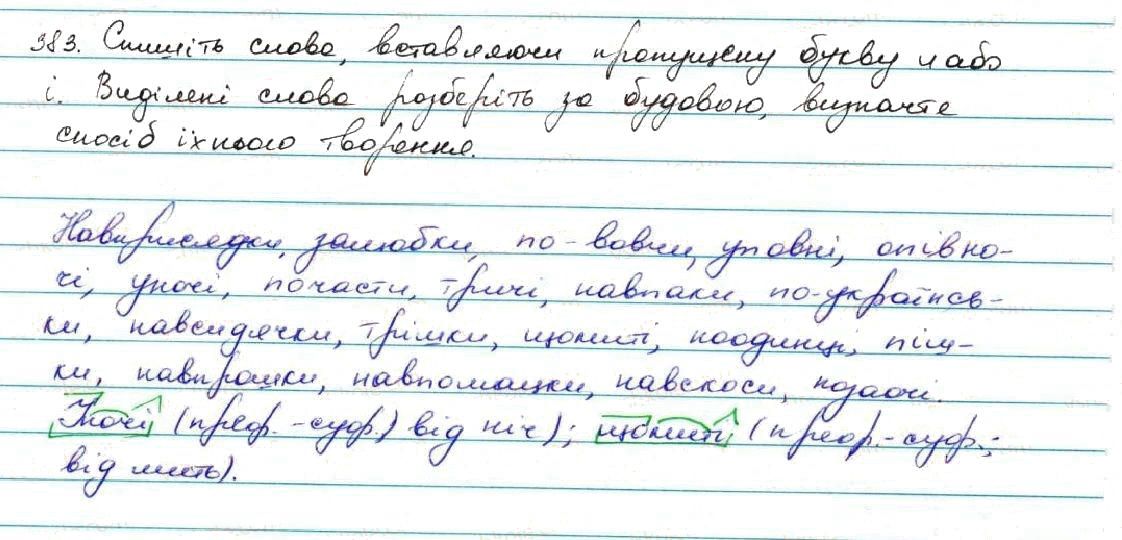 383. Спишіть слова, вставляючи пропущену букву и або
і. Виділені слова розберіть за будовою, визначте
спосіб їхнього творення.
Навприсядки, залюбки, по-вовчи, уповні, опівно-
чі, уночі, почасти, тричі, навпаки, по-українсь-
ки, навсидячки, трішки, щомиті, поодинці, піш-
ки, навпрошки, навпомацки, навскоси, позаочі.
Уночі (преф.-суф.) від ніч); щомиті (преф.-суф.;
від мить).